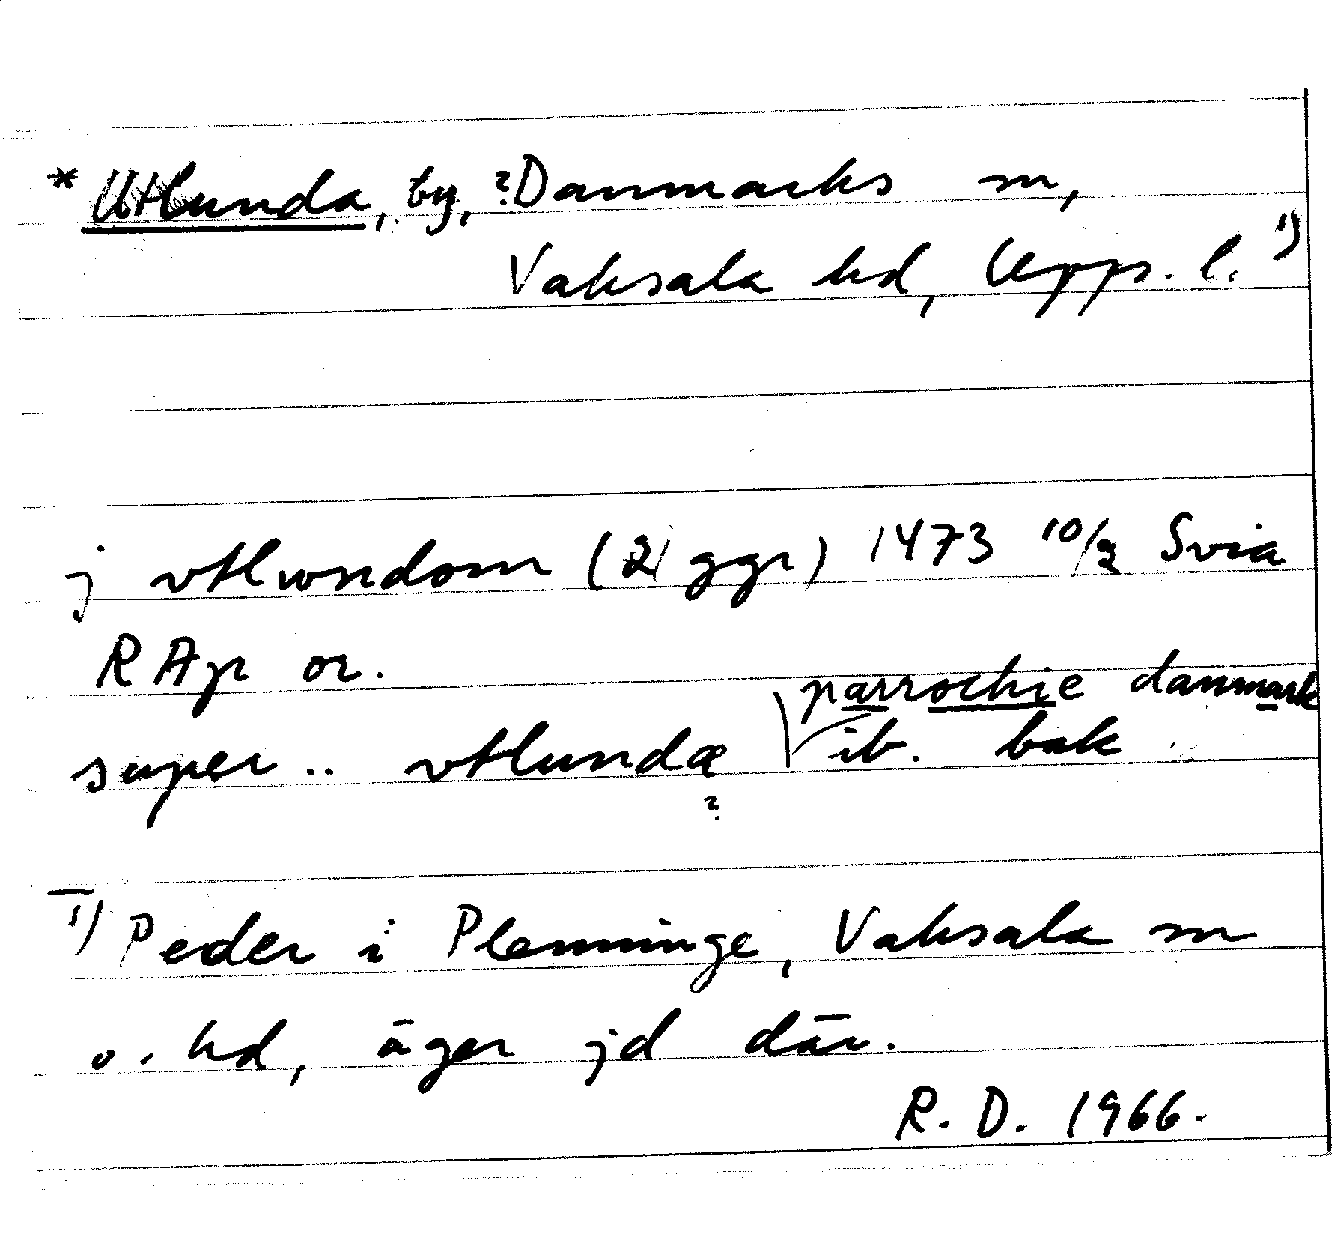 * Utlunda, by, ?Danmarks sn,
Vaksala hd, Upps. l. 1)
j vtlwndom (2 ggr) 1473 10/2 Svia
RAp or.
parrochie danmark
super .. vtlundæ ib. bak
?
1) Peder i Plenninge, Vaksala sn
o. hd, äger jd där.
R. D. 1966.